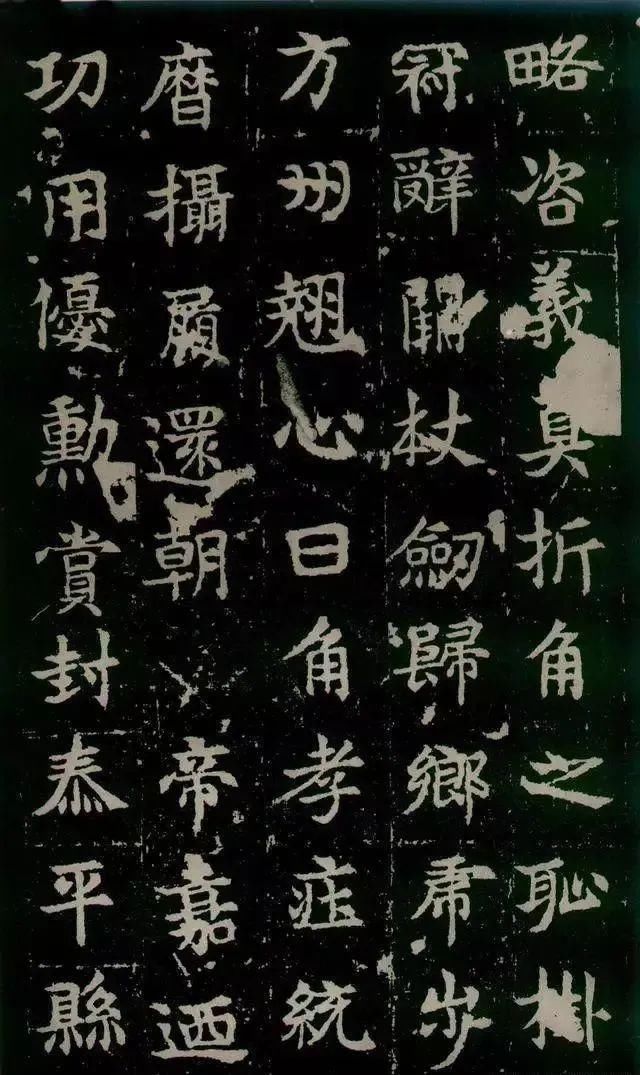 略咨義真折角之恥掛
冠辭闕杖劒歸鄉虎步
方州翹心日角孝莊統
曆攝履還朝 帝嘉迺
功用優勳賞封泰平縣